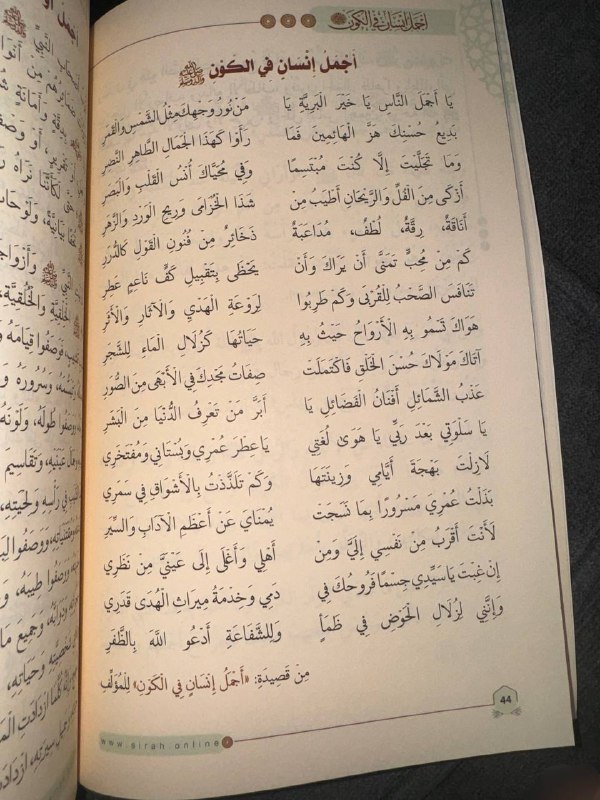 أَجْمَلُ إِنْسَانٍ فِي الْكَوْنِ ﷺ
أَجْمَلُ إِنْسَانٍ فِي الْكَوْنِ ﷺ
يَا أَجْمَلَ النَّاسِ يَا خَيْرَ الْبَرِيَّةِ يَا مَنْ نُورُ وَجْهِكَ مِثْلُ الشَّمْسِ وَالْقَمَرِ
بَدِيعُ حُسْنِكَ هَزَّ الْهَائِمِينَ فَمَا رَأَوْا كَهَذَا الْجَمَالِ الطَّاهِرِ النَّضِرِ
وَمَا تَجَلَّيْتَ إِلَّا كُنْتَ مُبْتَسِمًا وَفِي مُحَيَّاكَ أُنْسُ الْقَلْبِ وَالْبَصَرِ
أَزْكَى مِنَ الْفُلِّ وَالرَّيْحَانِ أَطْيَبُ مِنْ شَذَا الْخُزَامَى وَرِيحِ الْوَرْدِ وَالزَّهَرِ
أَنَاقَةٌ، رِقَّةٌ، لُطْفٌ، مُدَاعَبَةٌ ذَخَائِرٌ مِنْ فُنُونِ الْقَوْلِ كَالدُّرَرِ
كَمْ مِنْ مُحِبٍّ تَمَنَّى أَنْ يَرَاكَ وَأَنْ يَحْظَى بِتَقْبِيلِ كَفٍّ نَاعِمٍ عَطِرِ
تَنَافَسَ الصَّحْبُ لِلْقُرْبَى وَكَمْ طَرِبُوا لِرَوْعَةِ الْهَدْيِ وَالْآثَارِ وَالْأَثَرِ
هَوَاكَ تَسْمُو بِهِ الْأَرْوَاحُ حَيْثُ بِهِ حَيَاتُهَا كَزُلَالِ الْمَاءِ لِلشَّجَرِ
آتَاكَ مَوْلَاكَ حُسْنَ الْخَلْقِ فَاكْتَمَلَتْ صِفَاتُ مَجْدِكَ فِي الْأَبْهَى مِنَ الصُّوَرِ
عَذْبُ الشَّمَائِلِ أَفْنَانُ الْفَضَائِلِ يَا أَبَرَّ مَنْ تَعْرِفُ الدُّنْيَا مِنَ الْبَشَرِ
يَا سَلْوَتِي بَعْدَ رَبِّي يَا هَوَى لُغَتِي يَا عِطْرَ عُمْرِي وَبُسْتَانِي وَمُفْتَخَرِي
لَازِلْتَ بَهْجَةَ أَيَّامِي وَزِينَتَهَا وَكَمْ تَلَذَّذْتُ بِالْأَشْوَاقِ فِي سَمَرِي
بَذَلْتُ عُمْرِيَ مَسْرُورًا بِمَا نَسَجَتْ يُمْنَايَ عَنْ أَعْظَمِ الْآدَابِ وَالسِّيَرِ
لَأَنْتَ أَقْرَبُ مِنْ نَفْسِي إِلَيَّ وَمِنْ أَهْلِي وَأَغْلَى إِلَى عَيْنَيَّ مِنْ نَظَرِي
إِنْ غِبْتَ يَا سَيِّدِي جِسْمًا فَرُوحُكَ فِي دَمِي وَخِدْمَةُ مِيرَاثِ الْهُدَى قَدَرِي
وَإِنَّنِي لِزُلَالِ الْحَوْضِ فِي ظَمَأٍ وَلِلشَّفَاعَةِ أَدْعُو اللهَ بِالظَّفَرِ
مِنْ قَصِيدَةِ: «أَجْمَلُ إِنْسَانٍ فِي الْكَوْنِ» لِلْمُؤَلِّفِ
44
www.sirah.online